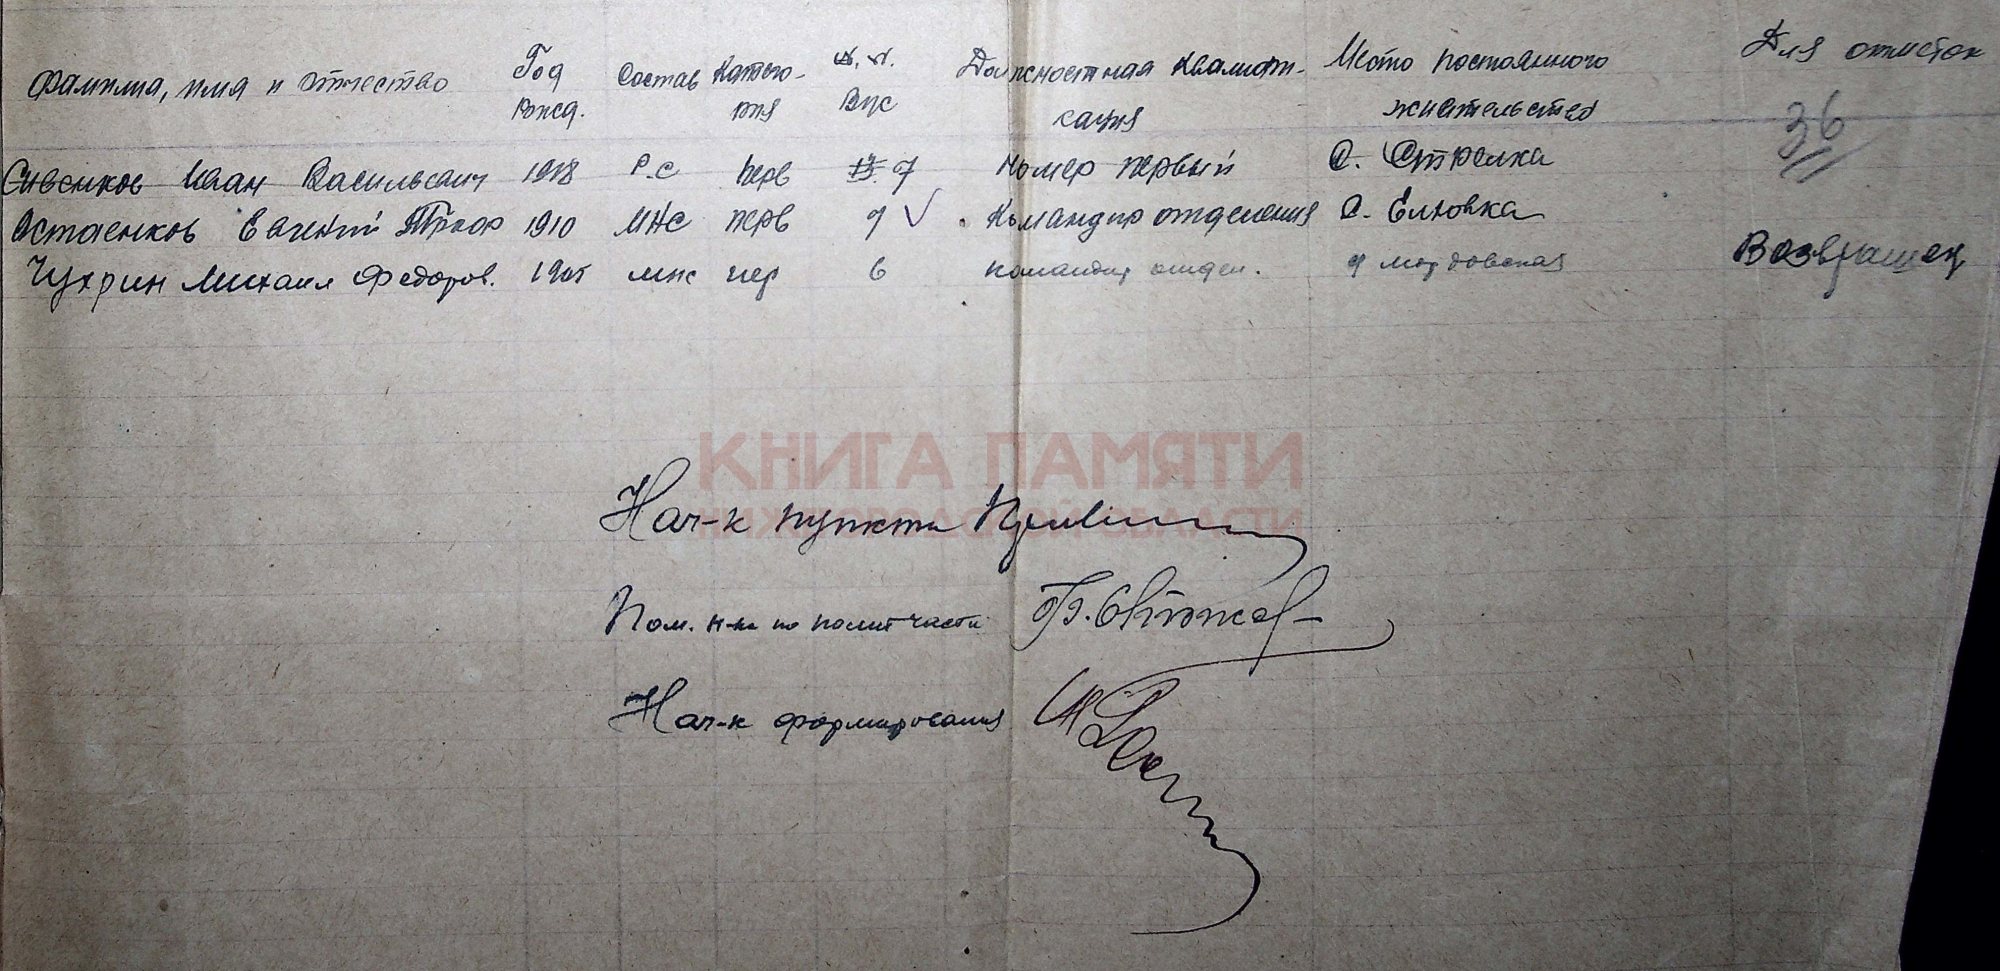 Фамилия, имя и отчество Год рожд. Состав Катего-рия №, №. Вус Должностная квалифи-кация Место постоянного жительства Для отметок
36
Сивенков Иван Васильевич 1918 Р.С перв 7 Номер первый С. Стрелка
Остаенков Евгений 1910 МНС перв 7 Командир отделения С. Еловка
Чухрин Михаил Федоров. 1905 мнс пер 6 командир отдел. д мордовская Возвращен
КНИГА ПАМЯТИ
НИЖЕГОРОДСКОЙ ОБЛАСТИ
Нач-к пункта
Пом. н-ка по политчасти
Нач-к формирования